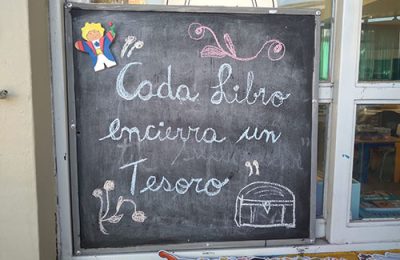 "Cada Libro
encierra un
Tesoro"